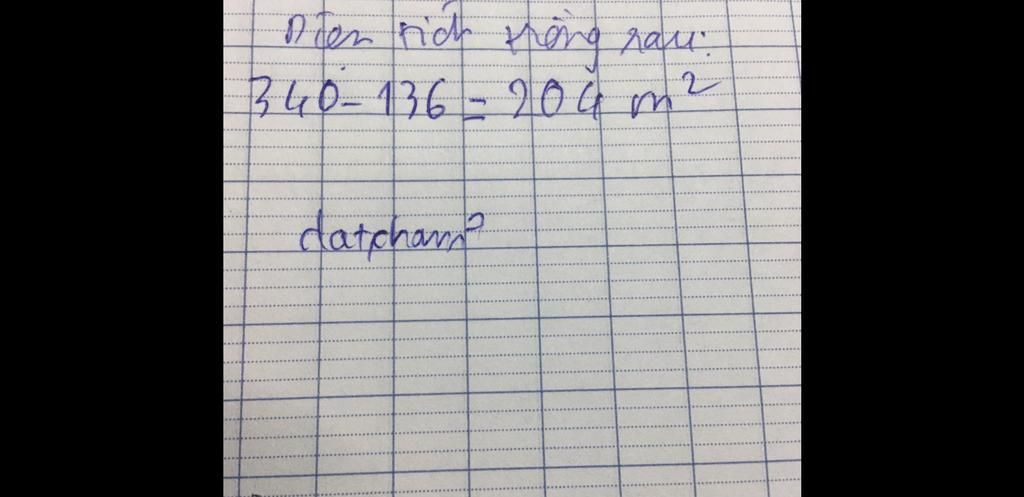 Diện tích trồng rau:
340 - 136 = 204 m²
datpham?